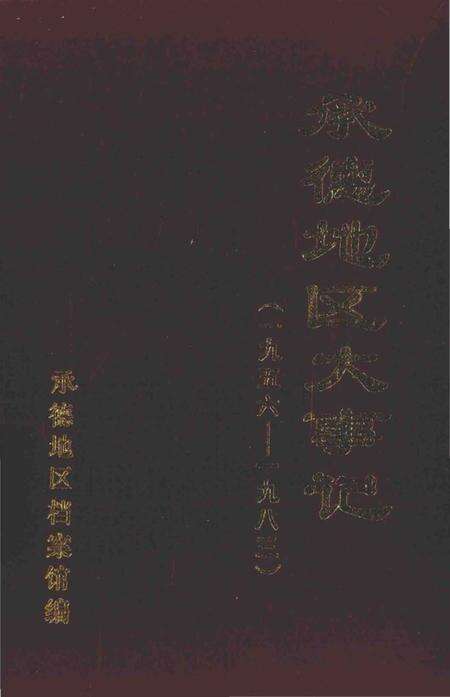 承德地区大事记
（一九五六—一九八三）
承德地区档案馆编